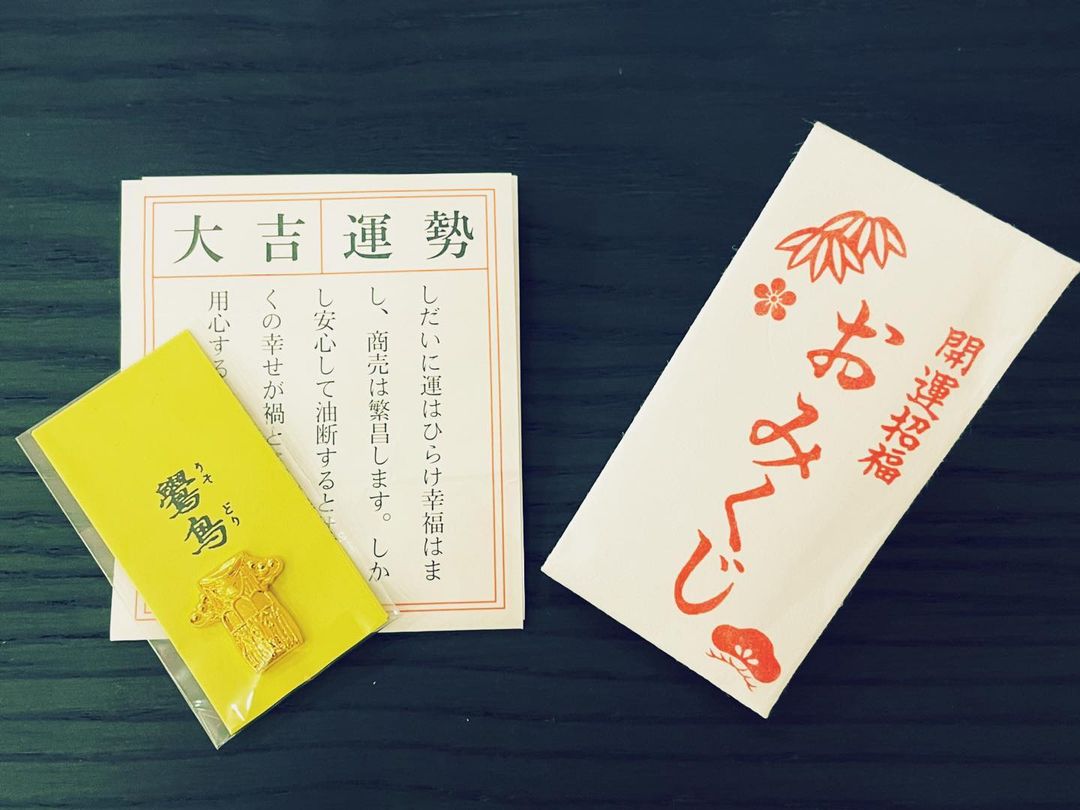 大吉 運勢
しだいに運はひらけ幸福はま
し、商売は繁昌します。しか
し安心して油断すると
くの幸せが禍と
用心する
鷽鳥
うそ どり
開運招福
おみくじ